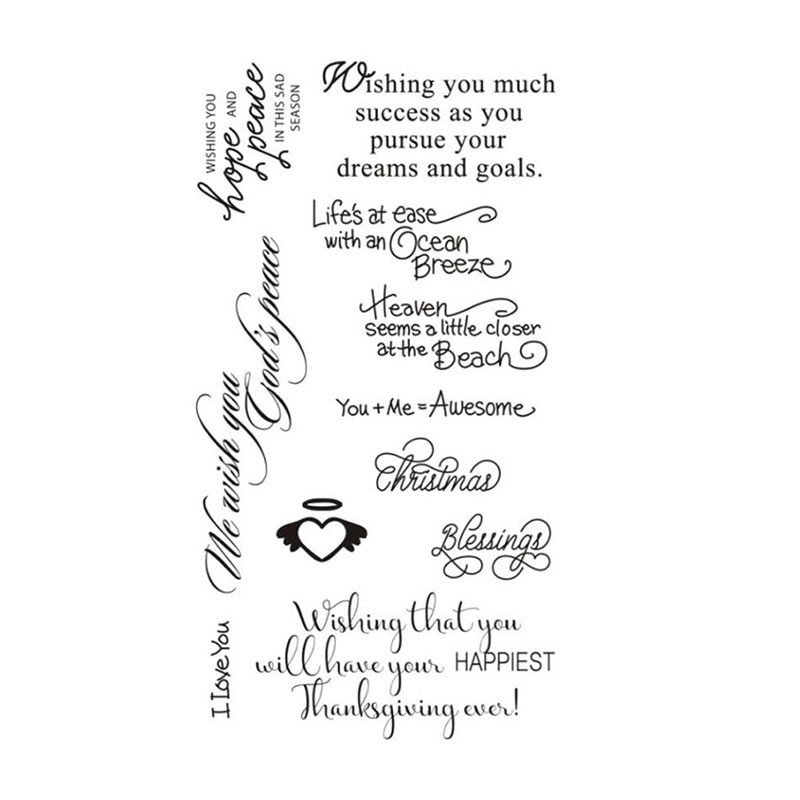 WISHING YOU
hope AND
peace
IN THIS SAD
SEASON
Wishing you much
success as you
pursue your
dreams and goals.
Life's at ease
with an Ocean
Breeze
Heaven
seems a little closer
at the Beach
You + Me = Awesome
We wish you
God's peace
Christmas
Blessings
I Love You
Wishing that you
will have your HAPPIEST
Thanksgiving ever!